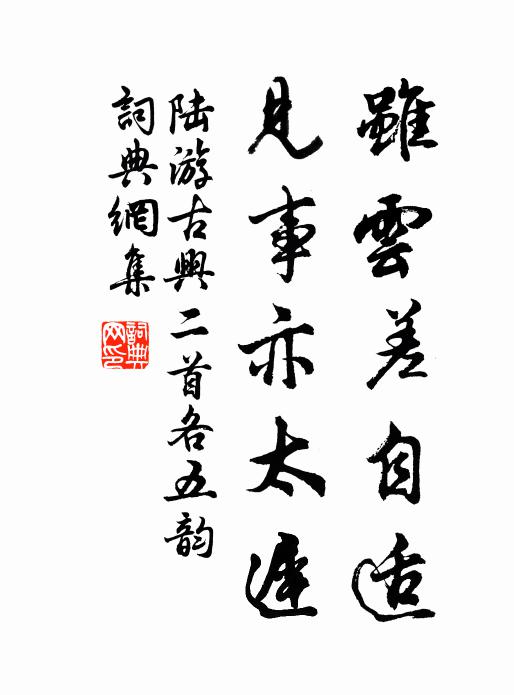 雖雲差自适
見事亦太遲
陆游古興二首各五韵
詞典網集
詞典网印